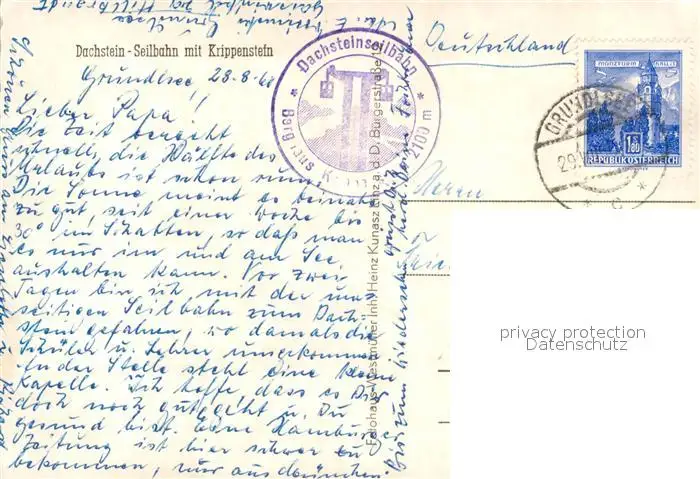 Dachstein - Seilbahn mit Krippenstein
Deutschland
Grundlsee 28.8.
Lieber Papa!!
Die Zeit vergeht
schnell, die Hälfte des
Urlaubs ist schon rum.
Die Sonne meint es beinahe
zu gut, seit einer Woche bis
30° im Schatten, so daß man
es nur im und am See
aushalten kann. Vor zwei
Tagen bin ich mit der
seitigen Seilbahn zum Dach-
stein gefahren, wo damals die
Schüler u. Lehrer umgekommen
An der Stelle steht eine kleine
Kapelle. Ich hoffe dass es Dir
doch noch gut geht u. Du
gesund bist. Eine Hamburger
Zeitung ist hier schwer zu
bekommen, nur aus München.
Bis zum Wiedersehn
Dachsteinseilbahn
Berghaus
2100 m
Fotohaus Westmüller Inh. Heinz Kunasz Linz a. d. D. Bürgerstraße 12
Herrn
MÜNZTURM HALL I. T.
1.80
REPUBLIK ÖSTERREICH
GRUNDLSEE
29.
c
privacy protection
Datenschutz